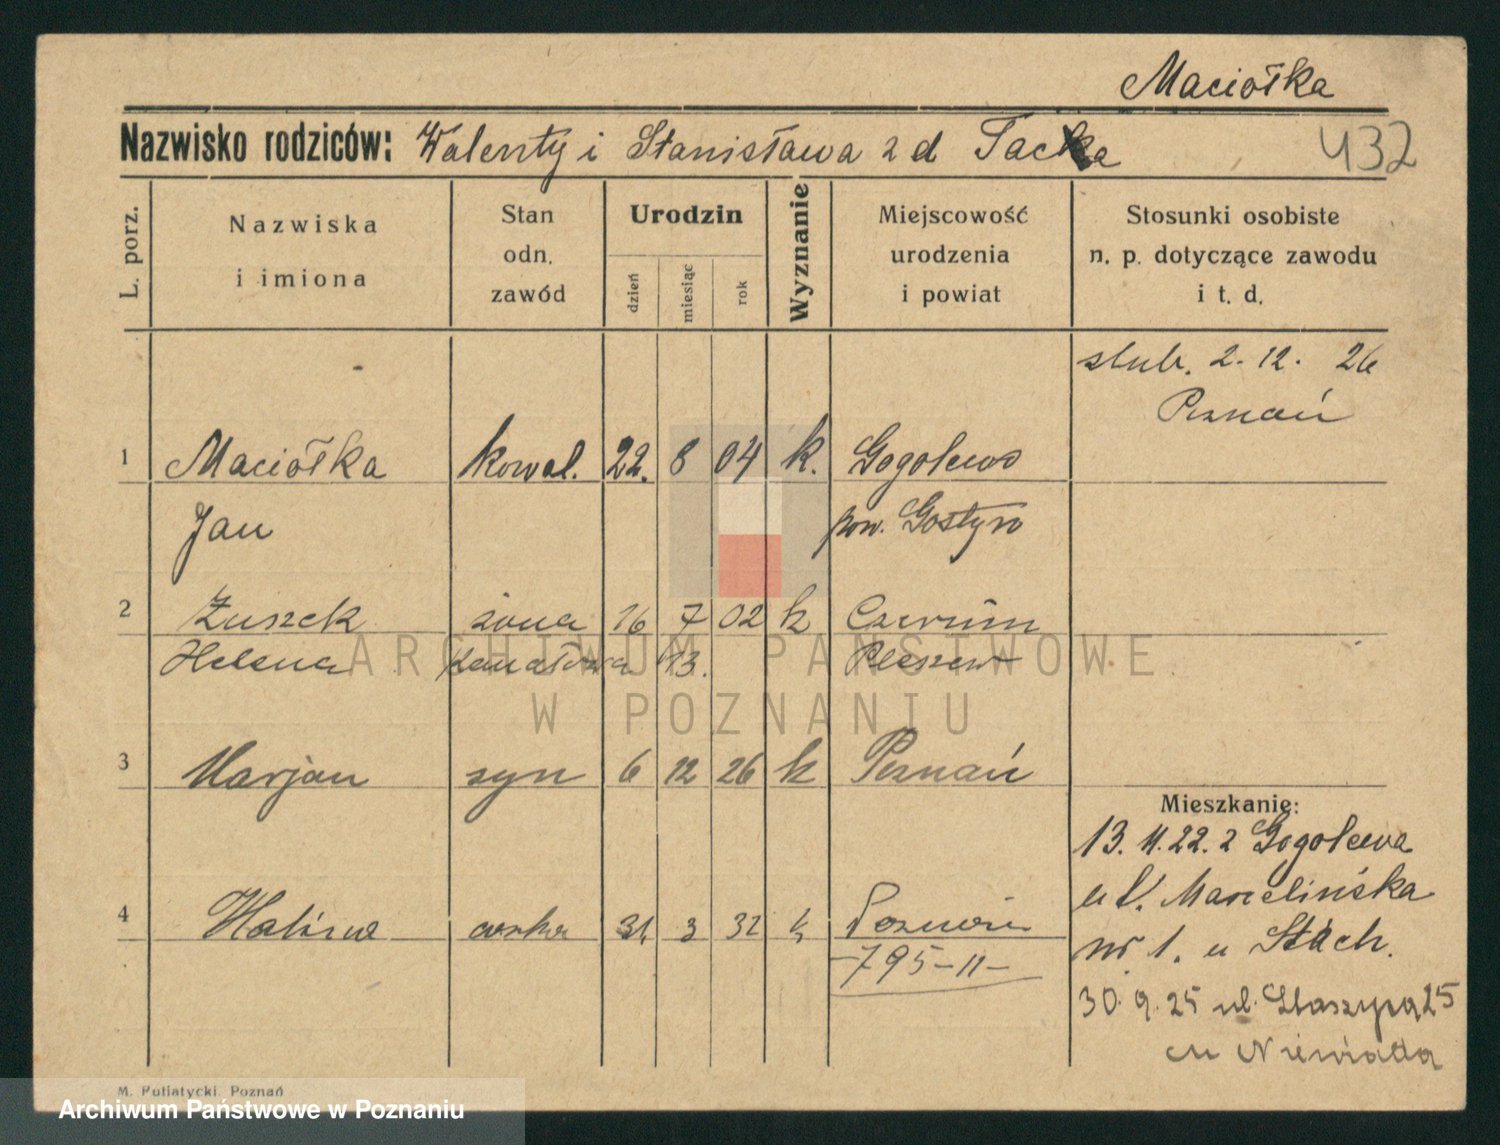 Maciołka
Nazwisko rodziców: Walenty i Stanisława z d Tacka
432
L. porz.
Nazwiska
i imiona
Stan
odn.
zawód
Urodzin
dzień
miesiąc
rok
Wyznanie
Miejscowość
urodzenia
i powiat
Stosunki osobiste
n. p. dotyczące zawodu
i t. d.
ślub. 2. 12. 26
Poznań
1 Maciołka kowal. 22. 8 04 k. Gogolewo
Jan pow. Gostyń
2 Żuszek żona 16 7 02 k Czermin
Helena 13. Pleszew
3 Marjan syn 6 12 26 k Poznań
Mieszkanie:
13. 11. 22. z Gogolewa
ul. Marcelińska
4 Halina córka 31 3 32 k Poznań
nr 1. u Stach.
-795-11-
30. 9. 25 ul. 25
u Niewiada
M. Putiatycki, Poznań
ARCHIWUM PAŃSTWOWE
W POZNANIU
Archiwum Państwowe w Poznaniu